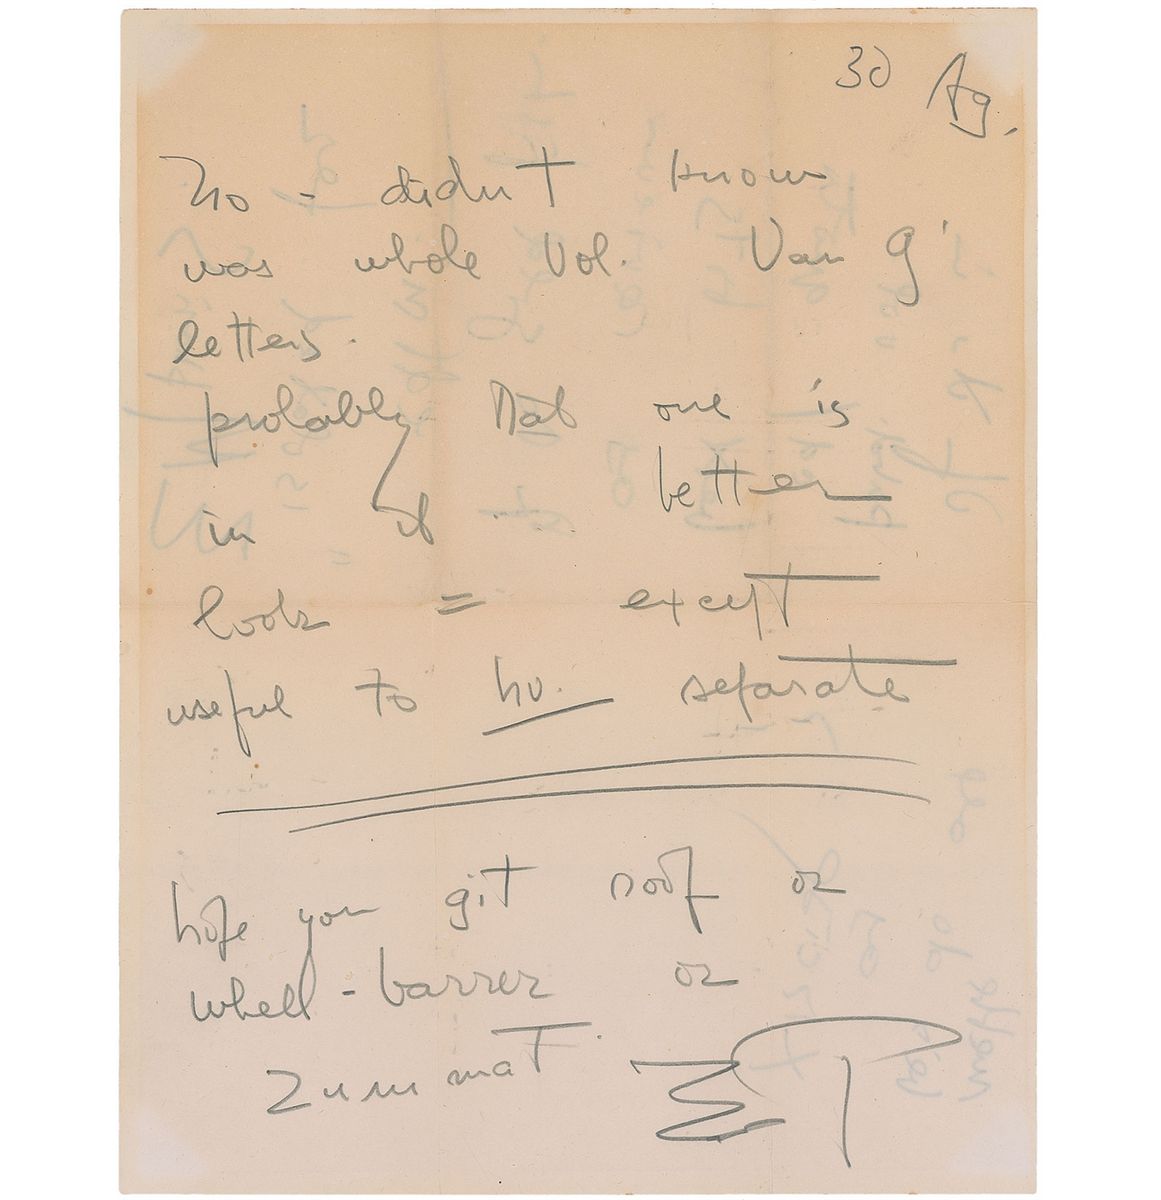 30 Ag.
no - didnt know
was whole Vol. Van G'
letters.
probably that one is
in it - better
look = except
useful to hv. separate
hope you git roof or
whell-barrer or
zummat.
EP